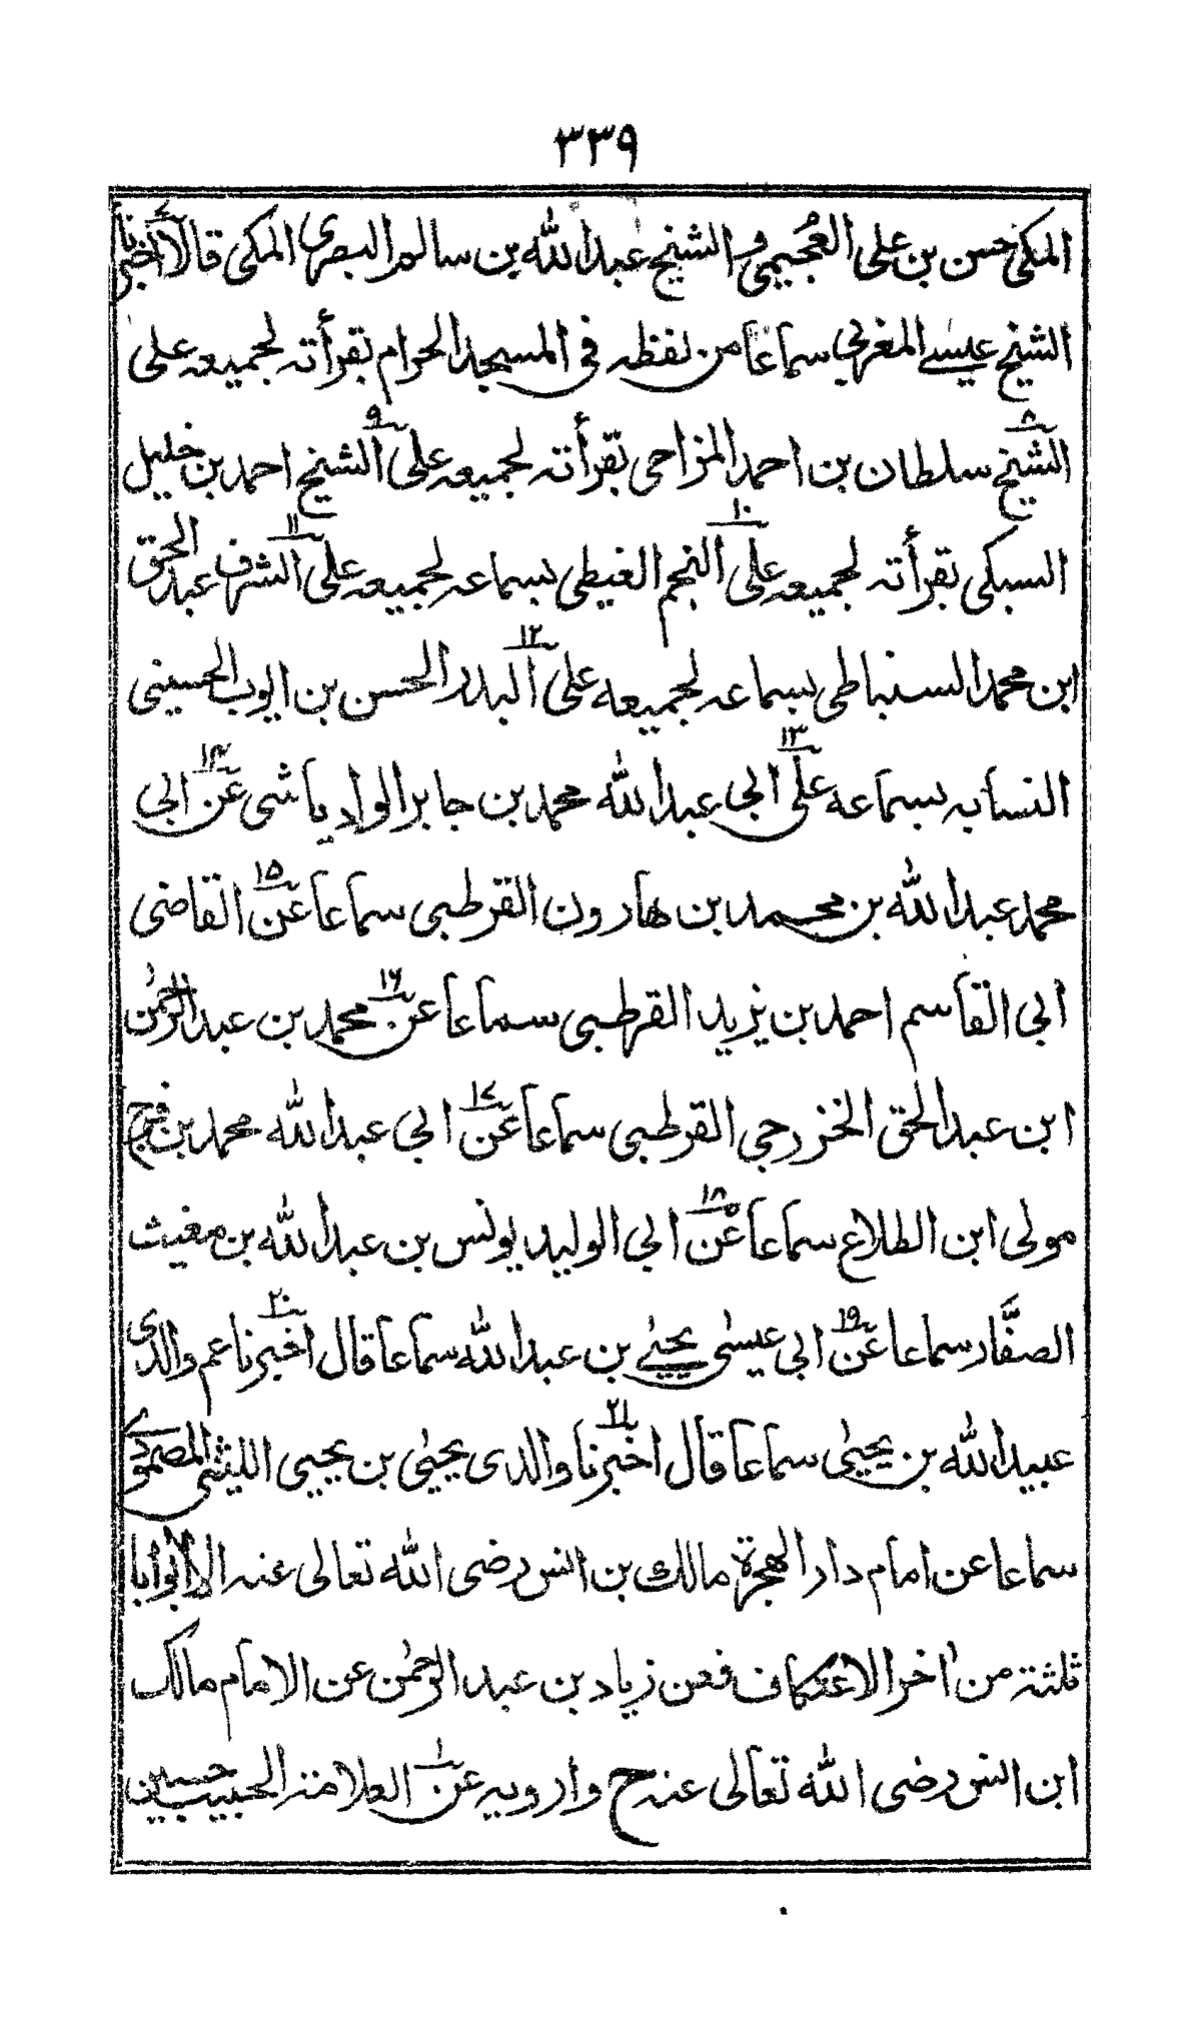 ٣٣٩
المكي حسن بن على العُجيمي و الشيخ عبدالله بن سالم البصرى المكى قالا أخبرنا
الشيخ عيسے المغربي سماعا من لفظه فى المسجد الحرام بقرأته لجميعه على
الشيخ ٨ سلطان بن احمد المزاحى بقرأته لجميعه على ٩ الشيخ احمد بن خليل
السبكى بقرأته لجميعه على ١٠ النجم الغيطى بسماعه لجميعه على ١١ الشرف عبدالحق
ابن محمد السنباطى بسماعه لجميعه على ١٢ البدر الحسن بن ايوب الحسينى
النسابه بسماعه على ١٣ ابى عبدالله محمد بن جابر الوادياشى عن ١٤ ابى
محمد عبدالله بن محمد بن هارون القرطبى سماعا عن ١٥ القاضى
ابى القاسم احمد بن يزيد القرطبى سماعا عن ١٦ محمد بن عبد الرحمٰن
ابن عبدالحق الخزرجى القرطبى سماعا عن ١٧ ابى عبدالله محمد بن فرج
مولى ابن الطلاع سماعا عن ١٨ ابى الوليد يونس بن عبدالله بن مغيث
الصفَّار سماعا عن ١٩ ابى عيسٰى يحيٰے بن عبدالله سماعا قال اخبرنا ٢٠ عم والدى
عبيدالله بن يحيٰى سماعا قال اخبرنا ٢١ والدى يحيٰى بن يحيى الليثى المصمودے
سماعا عن امام دار الهجرة مالك بن انس رضى الله تعالى عنه الا أبوابا
ثلثة من اٰخر الاعتكاف فعن زياد بن عبد الرحمٰن عن الامام مالك
ابن انس رضى الله تعالى عنه ح وارويه عن ١ العلامة الحبيب حسين